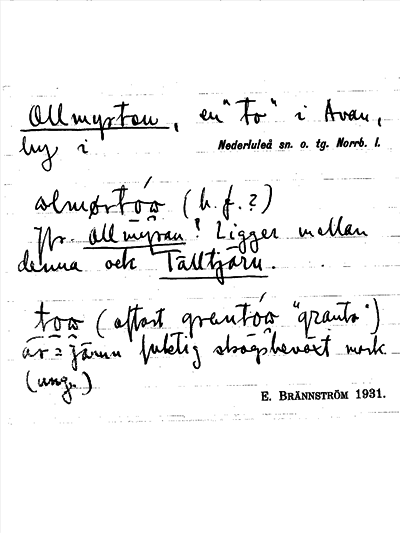 Ollmyrton, en "to" i Avan,
by i Nederluleå sn. o. tg. Norrb. l.
(b. f. ?)
Jfr. Ollmyran! Ligger mellan
denna och Talltjärn.
(oftast "granto")
är = jämn fuktig skogsbeväxt mark
(ung.)
E. BRÄNNSTRÖM 1931.